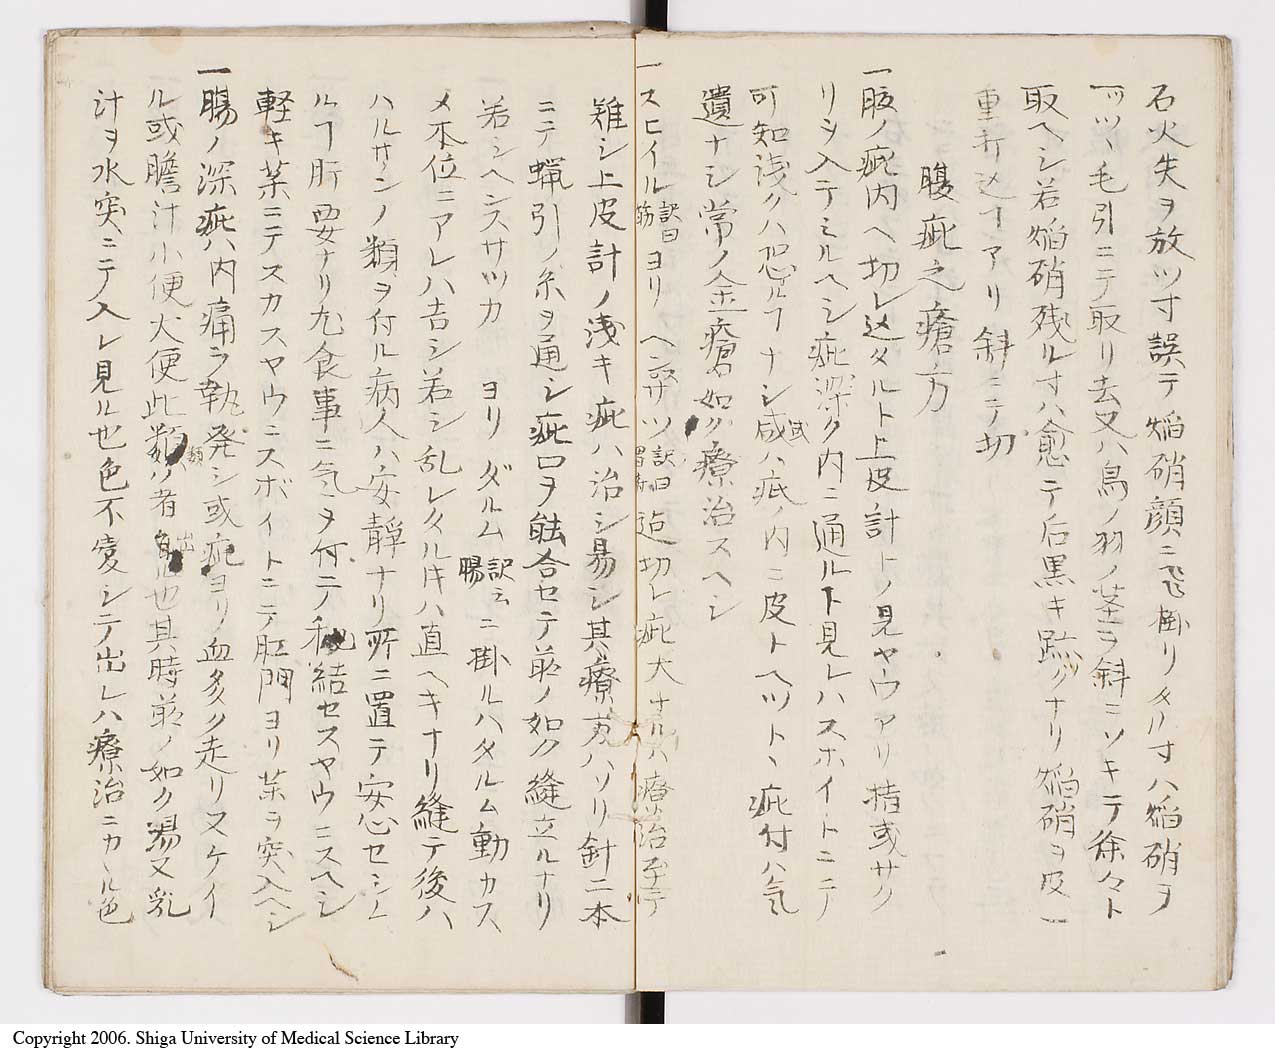 石火失ヲ放ツ寸誤テ焔硝顔ニ飛掛リタル寸ハ焔硝ヲ
一ツヽ毛引ニテ取リ去又ハ鳥ノ羽ノ茎ヲ斜ニソキテ徐々ト
取ヘシ若焔硝残ル寸ハ愈テ后黒キ跡ツクナリ焔硝ヲ皮一
重打込ヿアリ斜ニテ切
腹疵之療方
一腹ノ疵内ヘ切レ込タルト上皮計トノ見ヤウアリ指或サク
リヲ入テミルヘシ疵深ク内ニ通ルト見レハスホイトニテ
可知浅クハ恐ルヿナシ或ハ疵ノ内ニ皮トヘツトヽ疵付ハ気
遣ナシ常ノ金瘡如ク療治スヘシ
一スヒイル訳曰筋ヨリヘンサツ訳曰迄切レ疵大ナルハ療治至テ
難シ上皮計ノ浅キ疵ハ治シ易シ其療方ハソリ針二本
ニテ蝋引ノ糸ヲ通シ疵口ヲ能合セテ前ノ如ク縫立ルナリ
若シヘンスサツカヨリダルム訳云腸ニ掛ルハタルム動カス
メ本位ニアレハ吉シ若シ乱レタルキハ直ヘキナリ縫テ後ハ
ハルサンノ類ヲ付ル病人ハ安静ナリ所ニ置テ安心セシム
ルヿ肝要ナリ尤食事ニ気ヲ付テ秘結セスヤウニスヘシ
軽キ薬ニテスカスヤウニスボイトニテ肛門ヨリ薬ヲ突入ヘシ
一腸ノ深疵ハ内痛ラ執発シ或疵ヨリ血多ク走リ又ケイ
ル或膽汁小便大便此類ノ者出ル也其時前ノ如ク湯又乳
汁ヲ水突ニテ入レ見ル也色不変シテ出レハ療治ニカヽル色
Copyright 2006. Shiga University of Medical Science Library